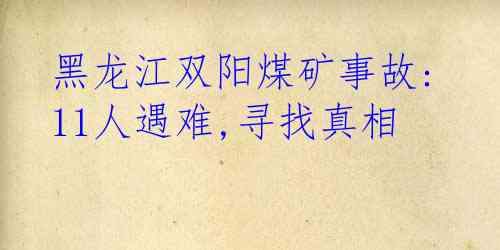 黑龙江双阳煤矿事故:
11人遇难,寻找真相